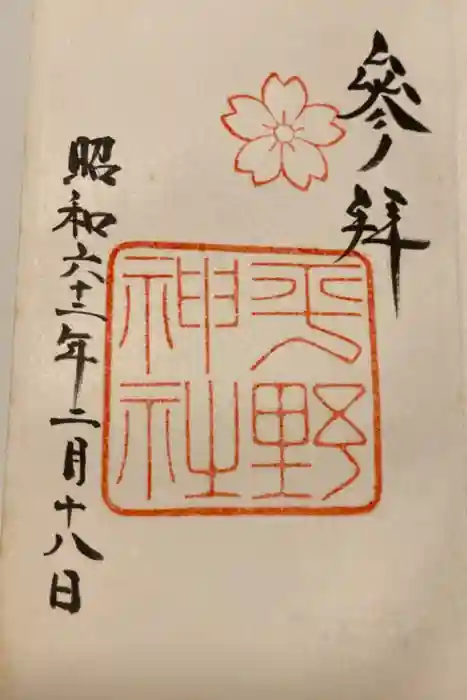 參拜
平野
神社
昭和六十二年二月十八日